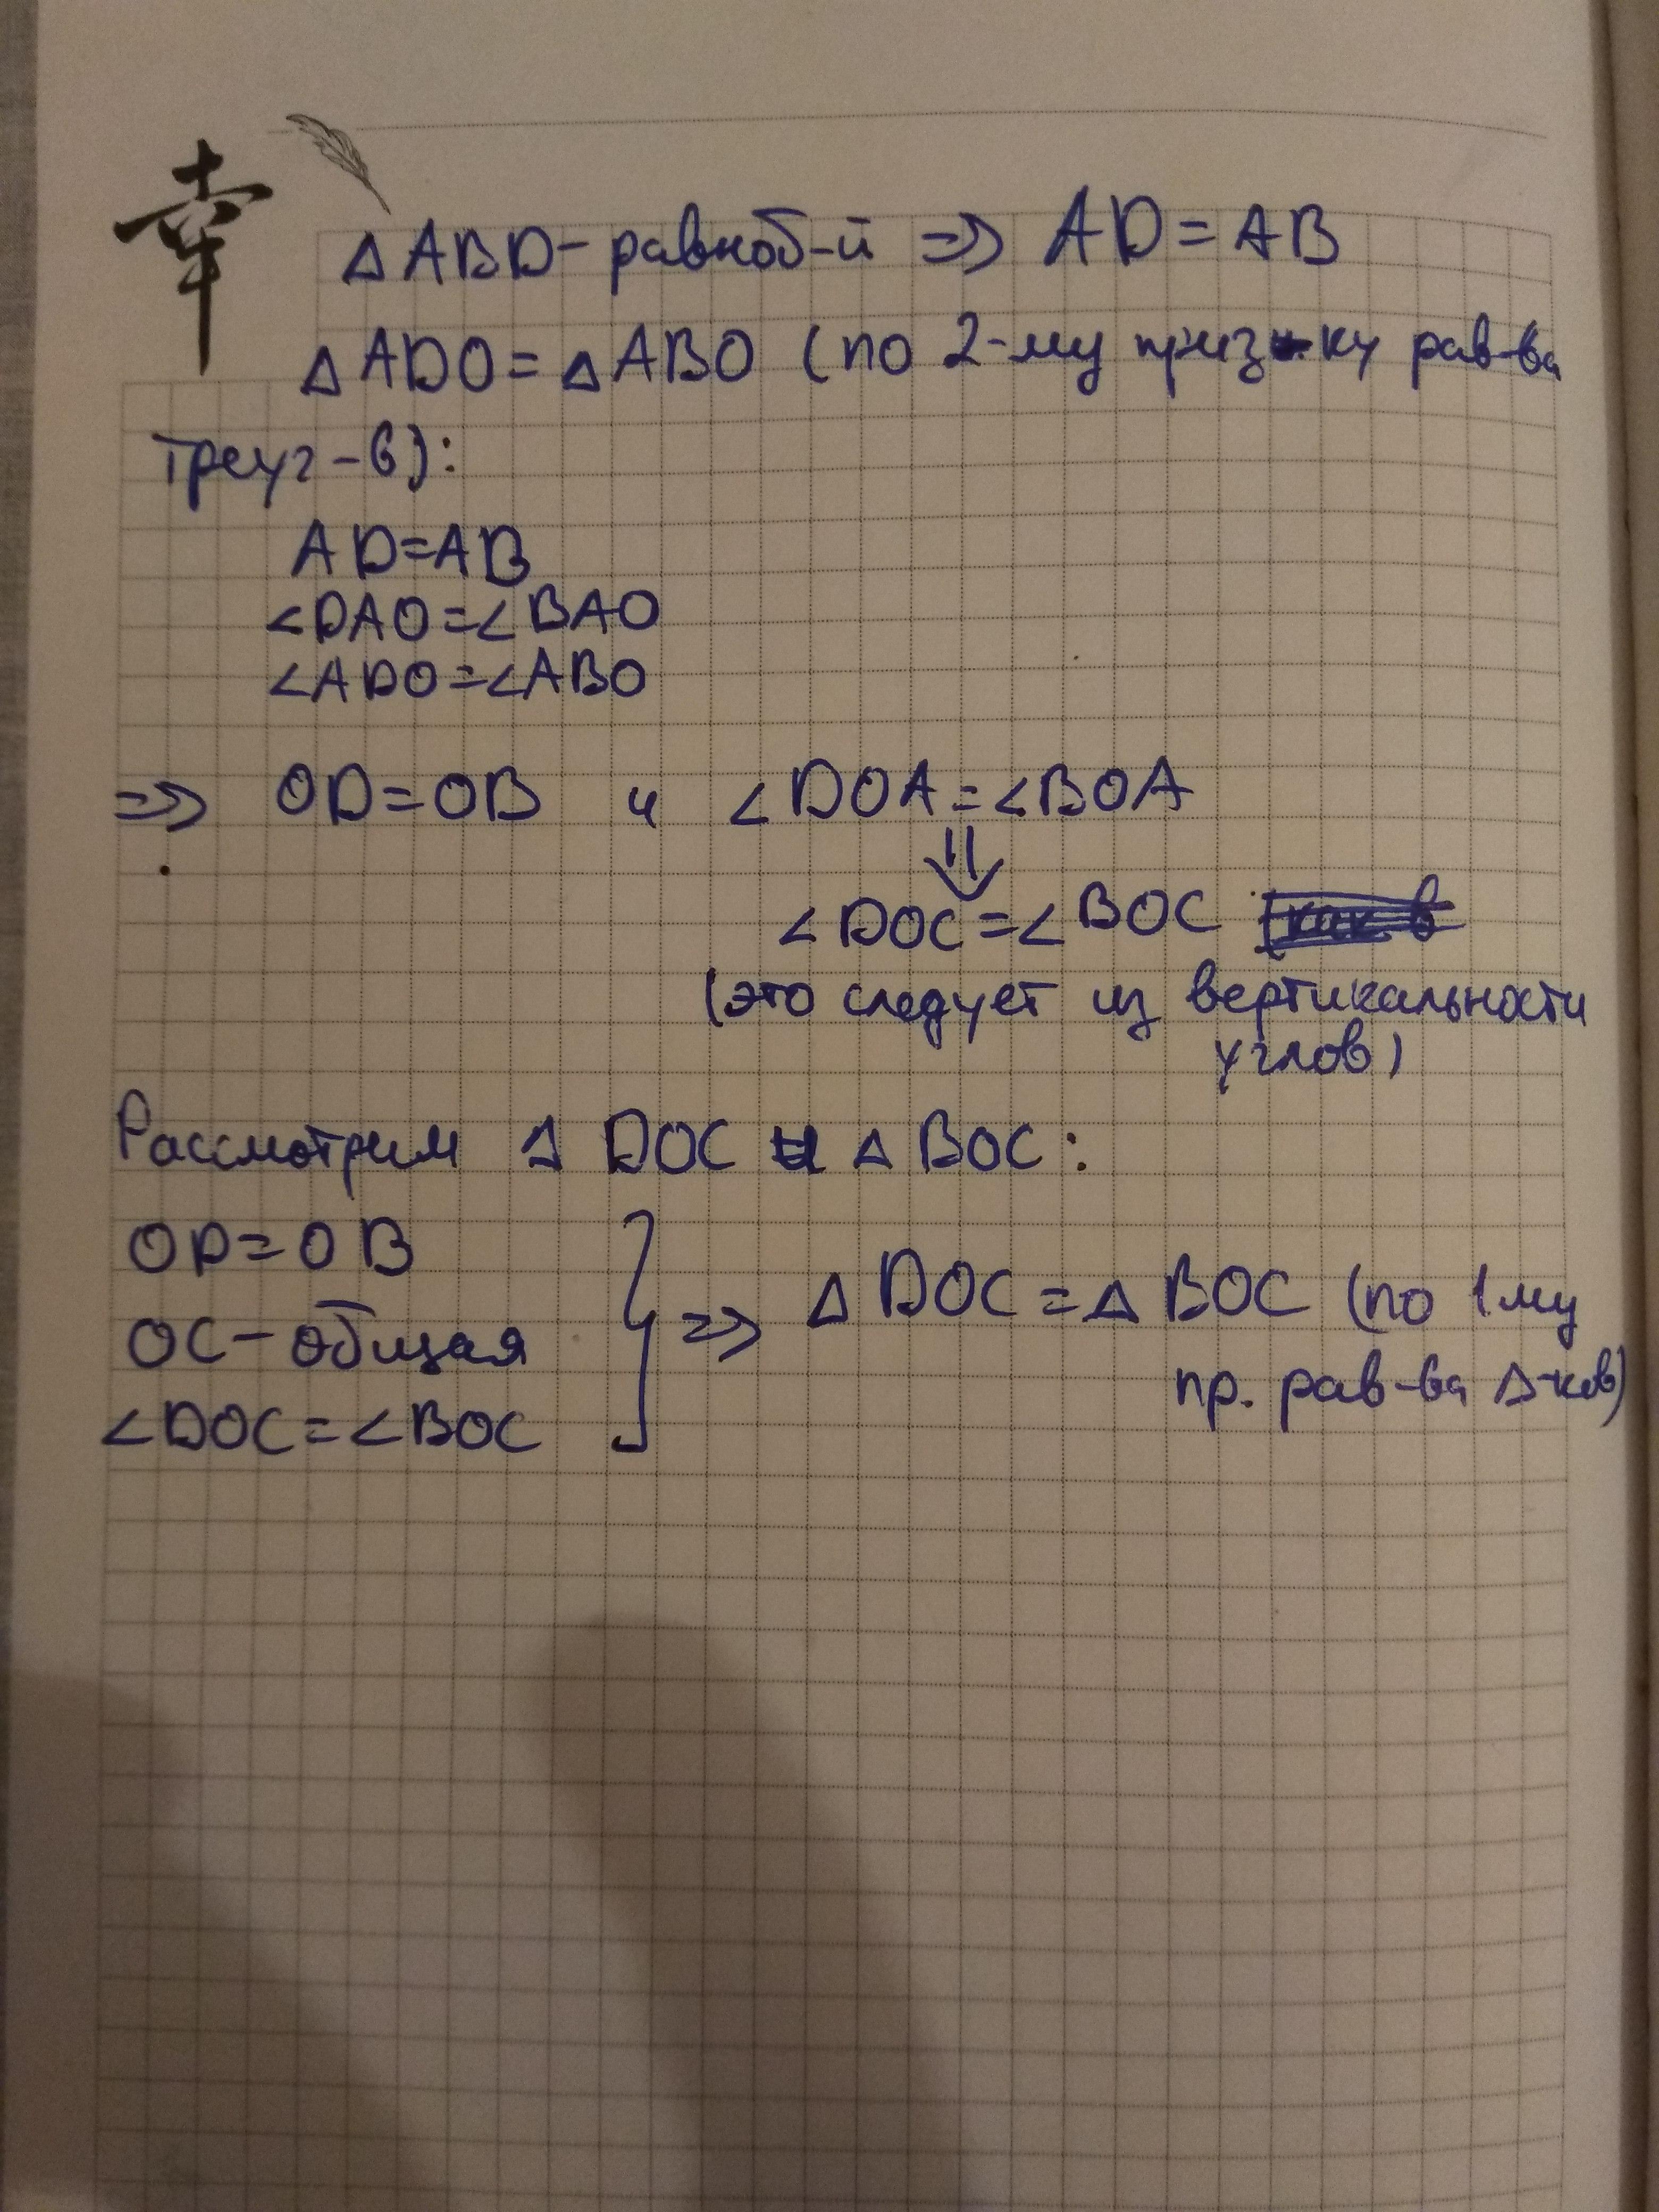 幸
△ABD - равноб-й => AD = AB
△ADO = △ABO (по 2-му призн-ку рав-ва
треуг-в):
AD=AB
∠DAO=∠BAO
∠ADO=∠ABO
=> OD=OB и ∠DOA=∠BOA
⇓
∠DOC=∠BOC
(это следует из вертикальности
углов)
Рассмотрим △ DOC и △ BOC:
OD=OB
OC-общая
∠DOC=∠BOC
} => △ DOC = △ BOC (по 1му
пр. рав-ва △-ков)